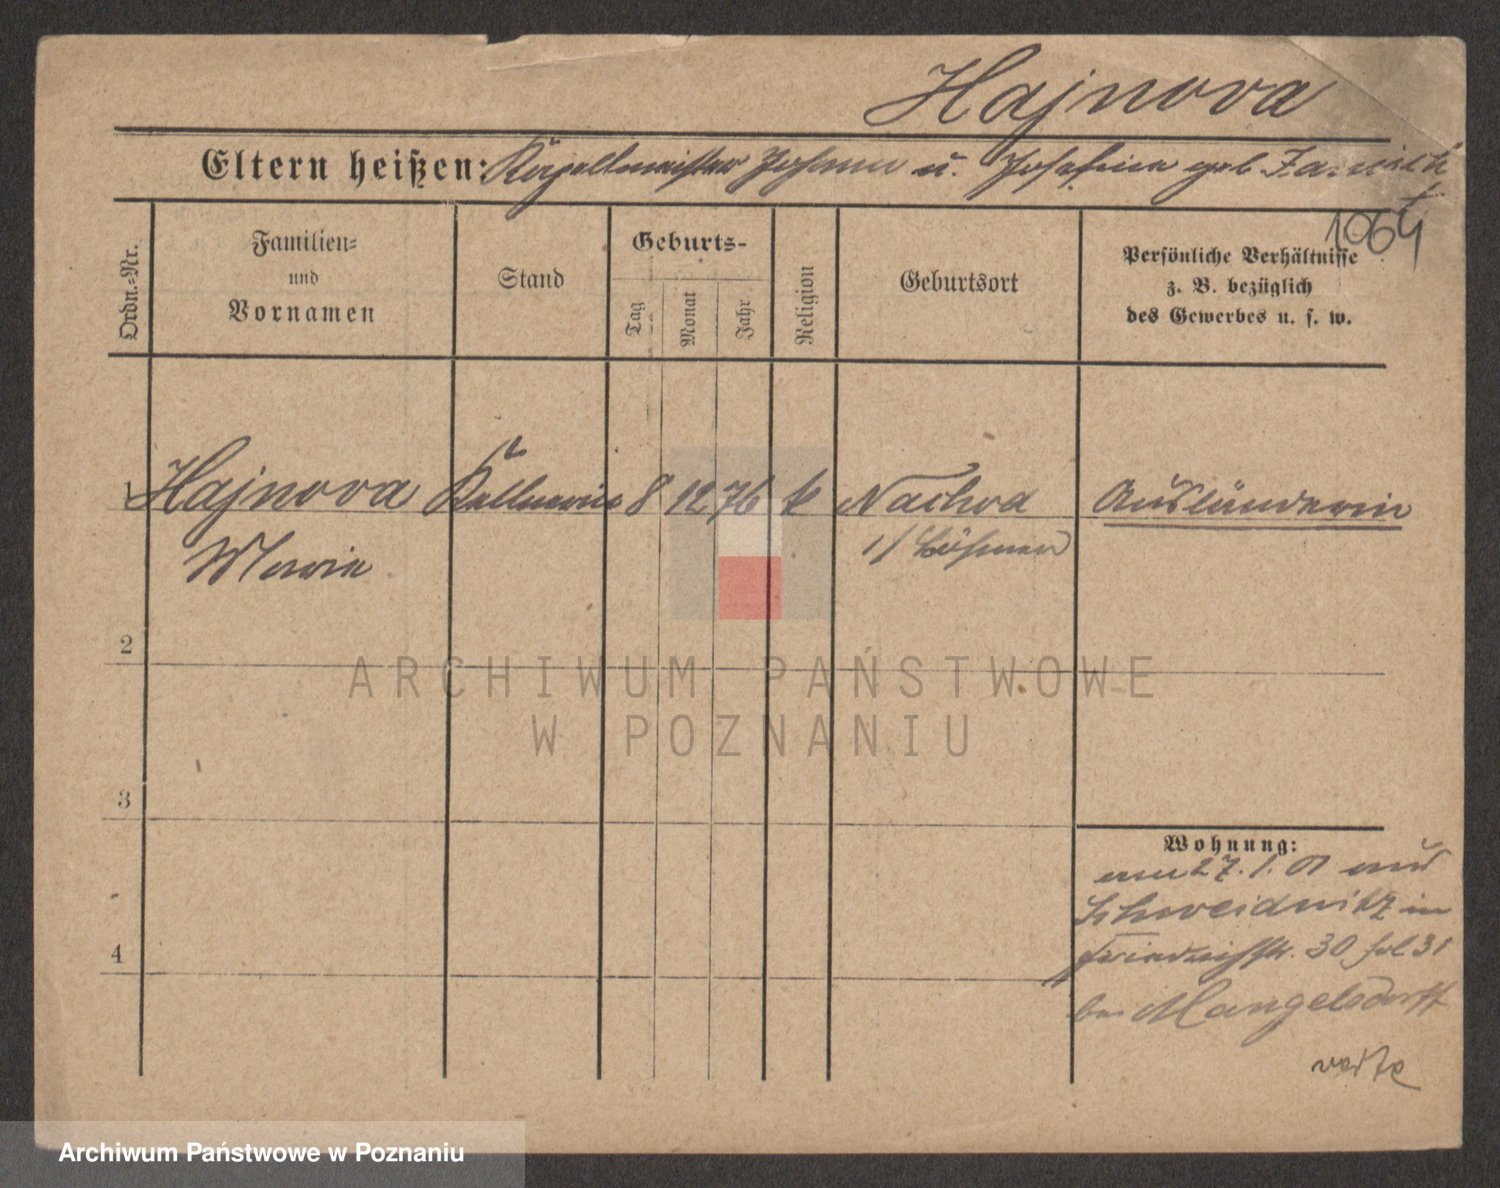 Hajnova
Eltern heißen: Kapellmeister Johann u. Josefine geb.
1064
Ordn.-Nr.
Familien-
und
Vornamen
Stand
Geburts-
Tag
Monat
Jahr
Religion
Geburtsort
Persönliche Verhältnisse
z. B. bezüglich
des Gewerbes u. s. w.
1 Hajnova Kellnerin 8 12 76 k Nachod Ausländerin
Marie
i/ Böhmen
2
3
4
Wohnung:
am 27. 1. 01 aus
Schweidnitz in
Friedrichstr. 30 fol 31
bei Mangelsdorff
ARCHIWUM PAŃSTWOWE
W POZNANIU
Archiwum Państwowe w Poznaniu